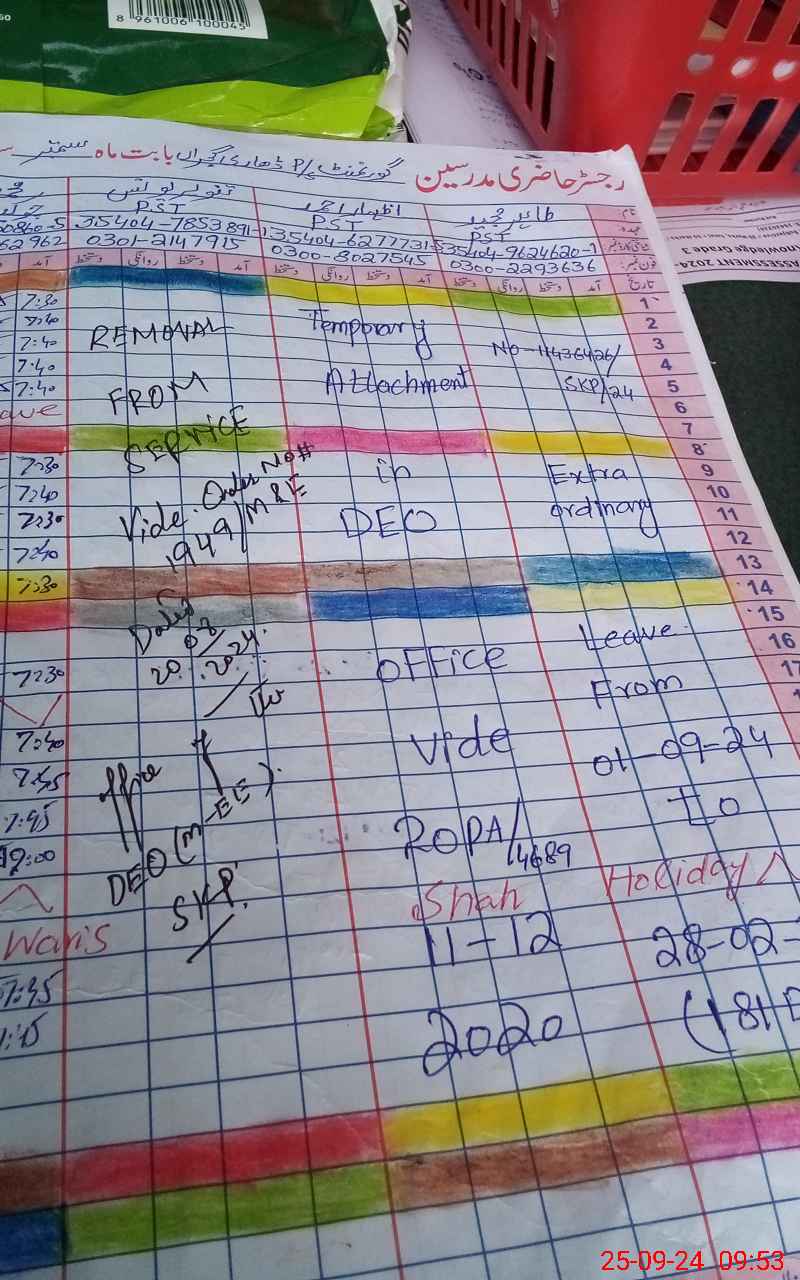 8 961006 100045
رجسٹر حاضری مدرسین گورنمنٹ P/S ڈھاری گجراں بابت ماہ ستمبر
نام:
طاہر مجید
PST
35404-9624620-1
0300-2293636
اظہار احمد
PST
35404-6277731-5
0300-8027545
PST
35404-7853891-1
0301-2147915
ASSESSMENT 2024
Knowledge Grade
تاریخ
آمد دستخط روانگی دستخط
آمد دستخط روانگی دستخط
آمد دستخط روانگی دستخط
1
2
3
4
5
6
7
8
9
10
11
12
13
14
15
16
17
No-11436426/
SKP/24
Extra
ordinary
Leave
From
01-09-24
to
Holiday
28-02-
(181 D
Temporary
Attachment
in
DEO
OFFICE
vide
ROPA/4689
Shah
11-12
2020
REMOVAL
FROM
SERVICE
Vide. Order No#
1949/M&E
Dated
20.02.2024.
office of
DEO (M-EE).
SKP.
7:30
7:40
7:40
7:40
7:40
ave
7:30
7:40
7:30
7:40
7:30
7:30
7:40
7:45
7:45
9:00
Waris
7:45
7:45
25-09-24 09:53